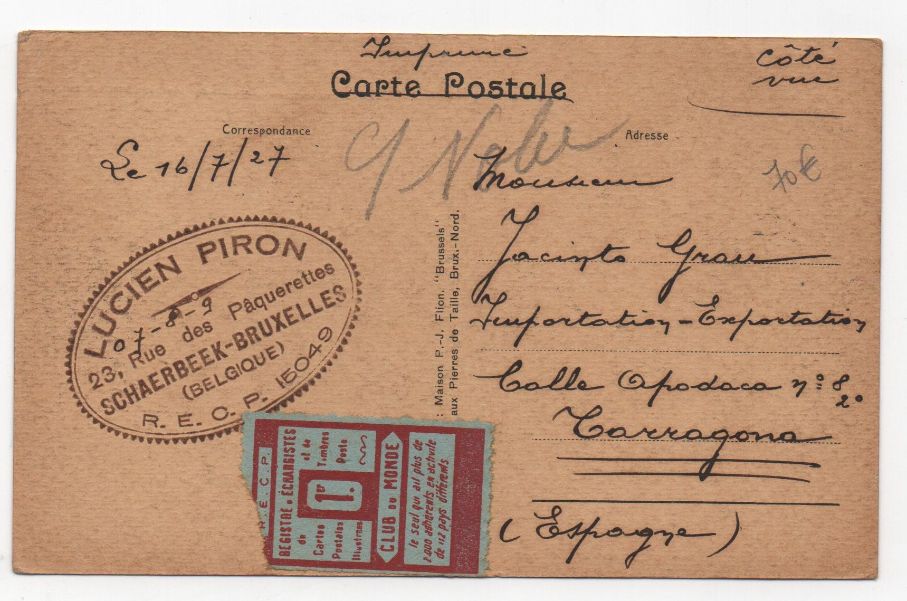 Imprimé
côté
vue
Carte Postale
Correspondance
Adresse
Le 16/7/27
70€
Monsieur
Jacinto Grau
Importation-Exportation
Calle Apodaca nº 8, 2º
Tarragona
(Espagne)
LUCIEN PIRON
07-8-9
23, Rue des Pâquerettes
SCHAERBEEK-BRUXELLES
(BELGIQUE)
R. E. C. P. 15049
: Maison P.-J. Flion. "Brussels"
aux Pierres de Taille, Brux.-Nord.
R. E. C. P.
REGISTRE D'ÉCHANGISTES
de Cartes Postales Illustrées
1er
et de Timbres Poste
CLUB DU MONDE
le seul qui ait plus de
2000 adhérents en activité
de 112 pays différents